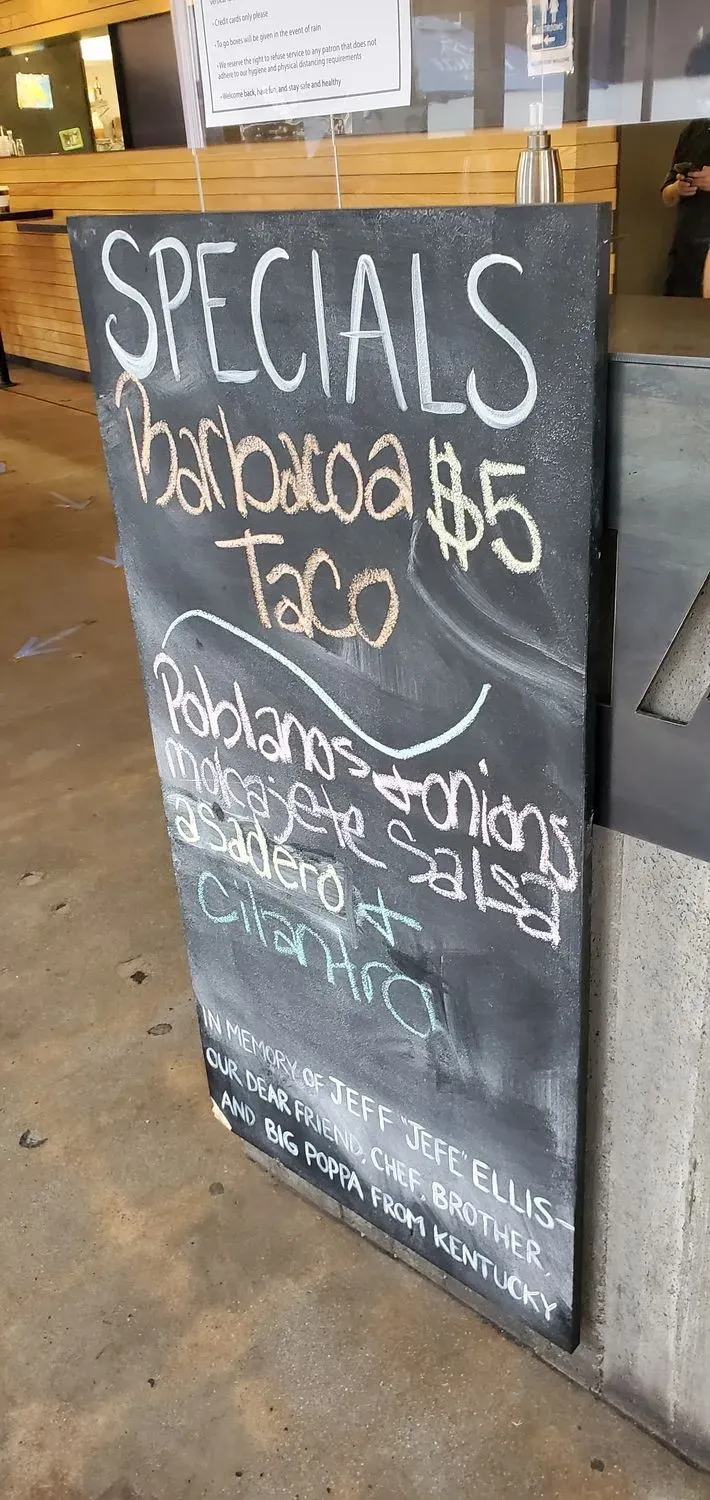 - Credit cards only please
- To go boxes will be given in the event of rain
- We reserve the right to refuse service to any patron that does not
adhere to our hygiene and physical distancing requirements
- Welcome back, have fun, and stay safe and healthy
SPECIALS
Barbacoa $5
Taco
Poblanos + onions
molcajete Salsa
asadero +
Cilantro
IN MEMORY OF JEFF "JEFE" ELLIS-
OUR DEAR FRIEND, CHEF, BROTHER,
AND BIG POPPA FROM KENTUCKY